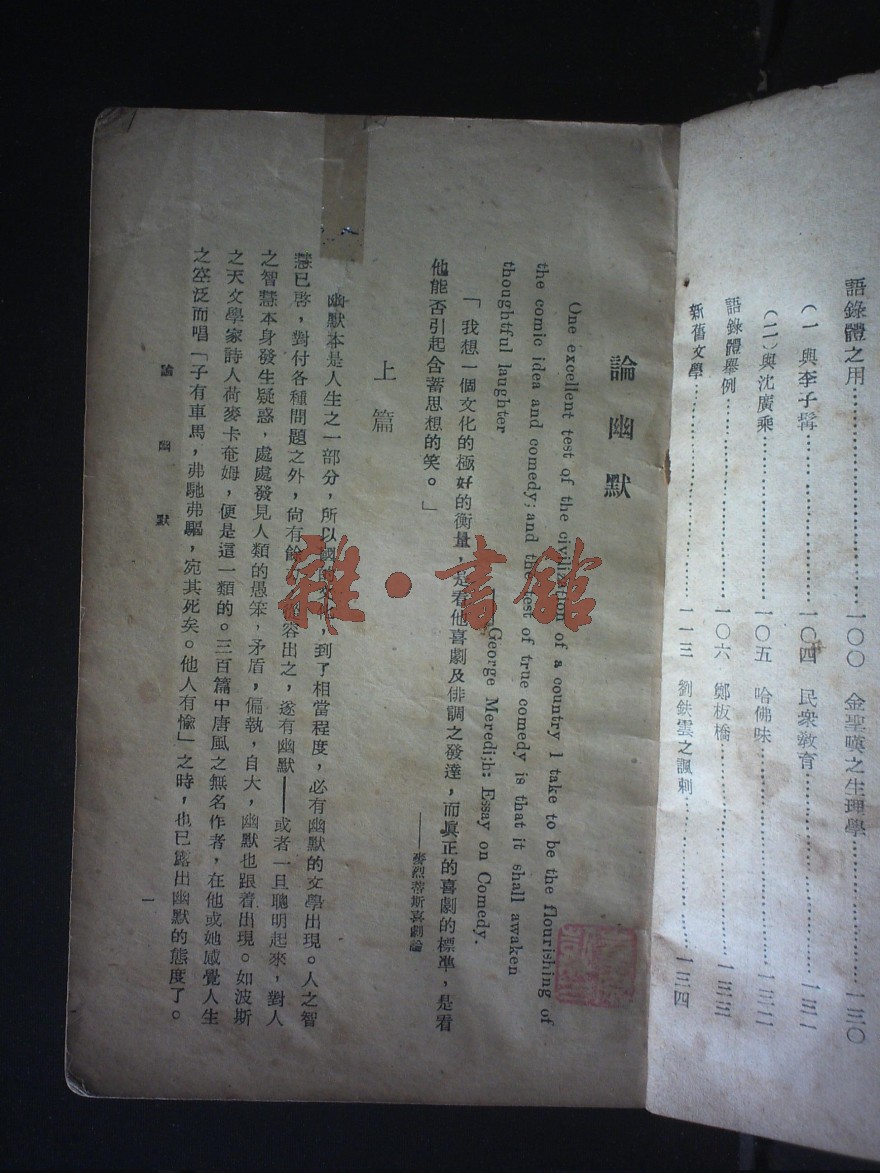 語錄體之用……一〇〇 金聖嘆之生理學……一三〇
(一)與李子髯……一〇四 民衆敎育……一三一
(二)與沈廣乘……一〇五 哈佛味……一三二
語錄體舉例……一〇六 鄭板橋……一三三
新舊文學……一一三 劉鉄雲之諷刺……一三四
論幽默
One excellent test of the civilization of a country I take to be the flourishing of
the comic idea and comedy; and the test of true comedy is that it shall awaken
thoughtful laughter
——George Meredi;h: Essay on Comedy.
「我想一個文化的極好的衡量，是看他喜劇及俳調之發達，而眞正的喜劇的標準，是看
他能否引起含蓄思想的笑。」
——麥烈蒂斯喜劇論
上篇
幽默本是人生之一部分，所以國的文化，到了相當程度，必有幽默的文學出現。人之智
慧已啓，對付各種問題之外，尙有餘力，從容出之，遂有幽默——或者一旦聰明起來，對人
之智慧本身發生疑惑，處處發見人類的愚笨，矛盾，偏執，自大，幽默也跟着出現。如波斯
之天文學家詩人荷麥卡奄姆，便是這一類的。三百篇中唐風之無名作者，在他或她感覺人生
之空泛而唱「子有車馬，弗馳弗驅，宛其死矣。他人有愉」之時，也已露出幽默的態度了。
論幽默
一
雜·書館